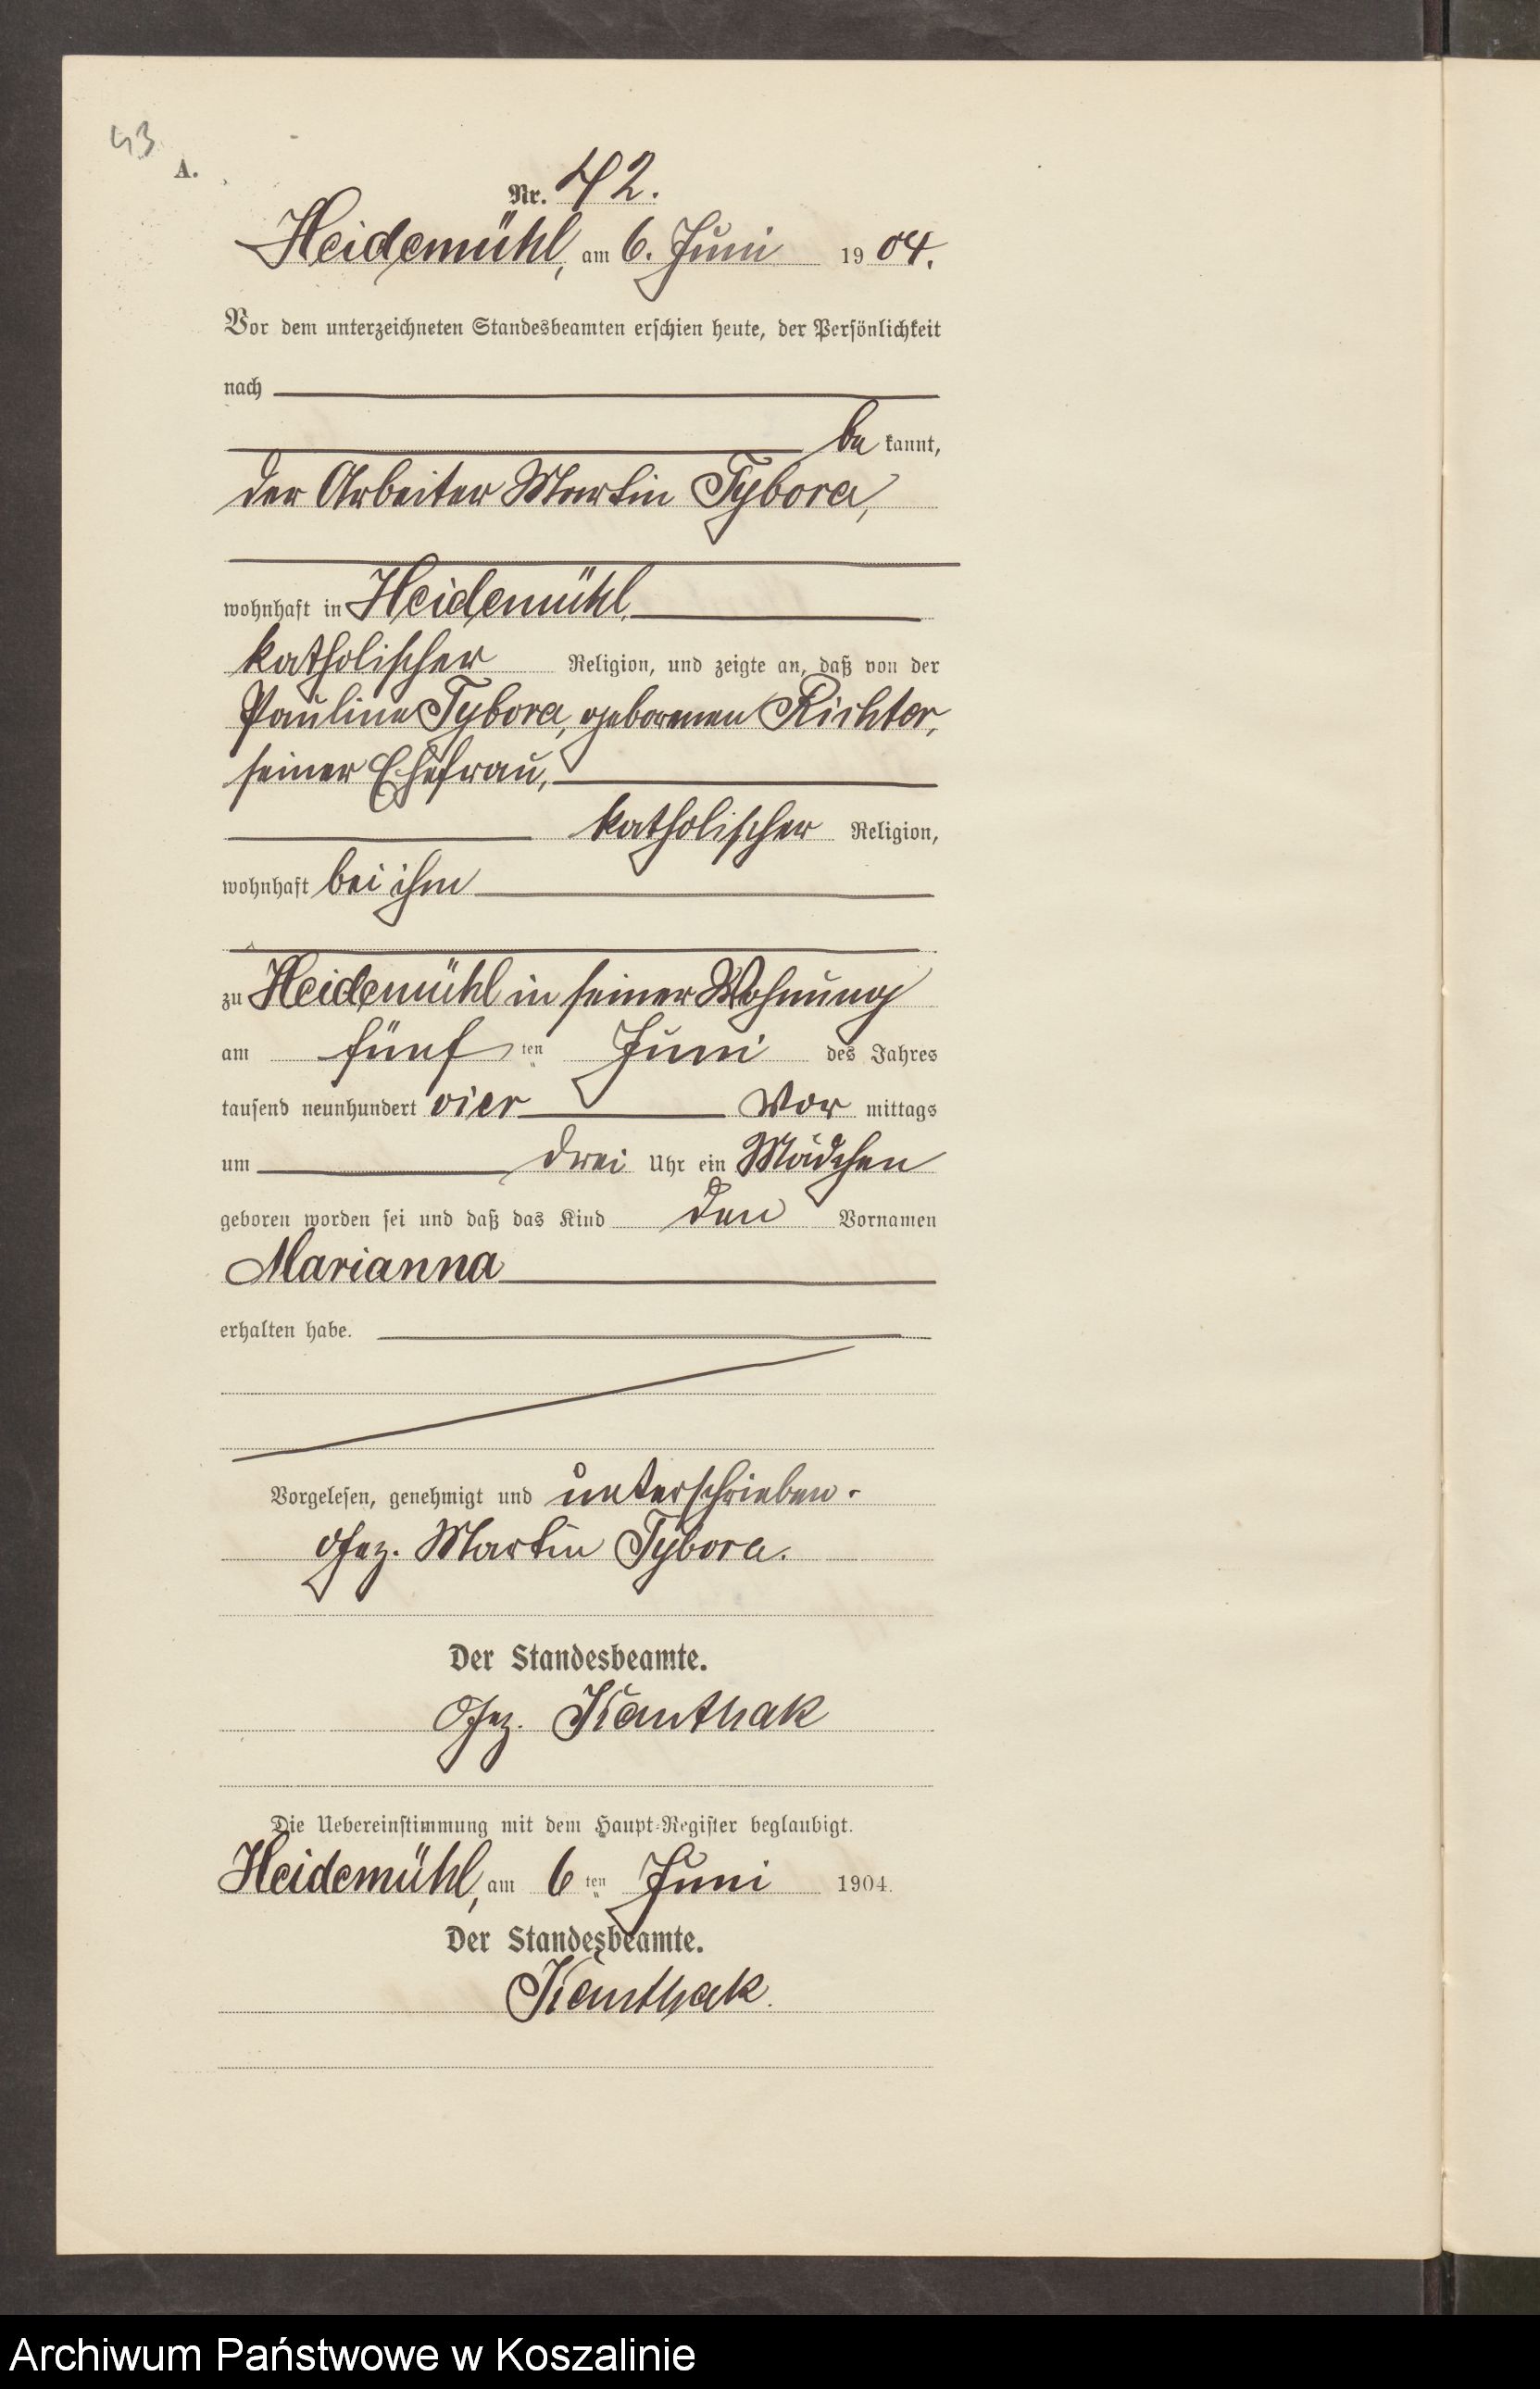 43
A.
Nr. 42.
Heidemühl, am 6. Juni 1904.
Vor dem unterzeichneten Standesbeamten erschien heute, der Persönlichkeit
nach
be kannt,
der Arbeiter Martin Tybora,
wohnhaft in Heidemühl,
katholischer Religion, und zeigte an, daß von der
Pauline Tybora, geborenen Richter,
seiner Ehefrau,
katholischer Religion,
wohnhaft bei ihm
zu Heidemühl in seiner Wohnung
am fünf ten Juni des Jahres
tausend neunhundert vier Vor mittags
um drei Uhr ein Mädchen
geboren worden sei und daß das Kind den Vornamen
Marianna
erhalten habe.
Vorgelesen, genehmigt und unterschrieben.
Gez. Martin Tybora.
Der Standesbeamte.
Gez. Kanthak
Die Uebereinstimmung mit dem Haupt-Register beglaubigt.
Heidemühl, am 6 ten Juni 1904.
Der Standesbeamte.
Kanthak.
Archiwum Państwowe w Koszalinie